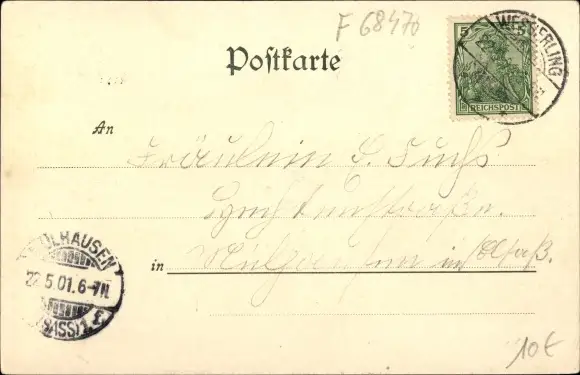 F 68470
Postkarte
5 5
REICHSPOST
WESSERLING
An
Fräulein E. Fuchs
MÜLHAUSEN
22.5.01.6-7N.
(ELSASS) 1.
in Mülhausen im Elsaß.
10 €